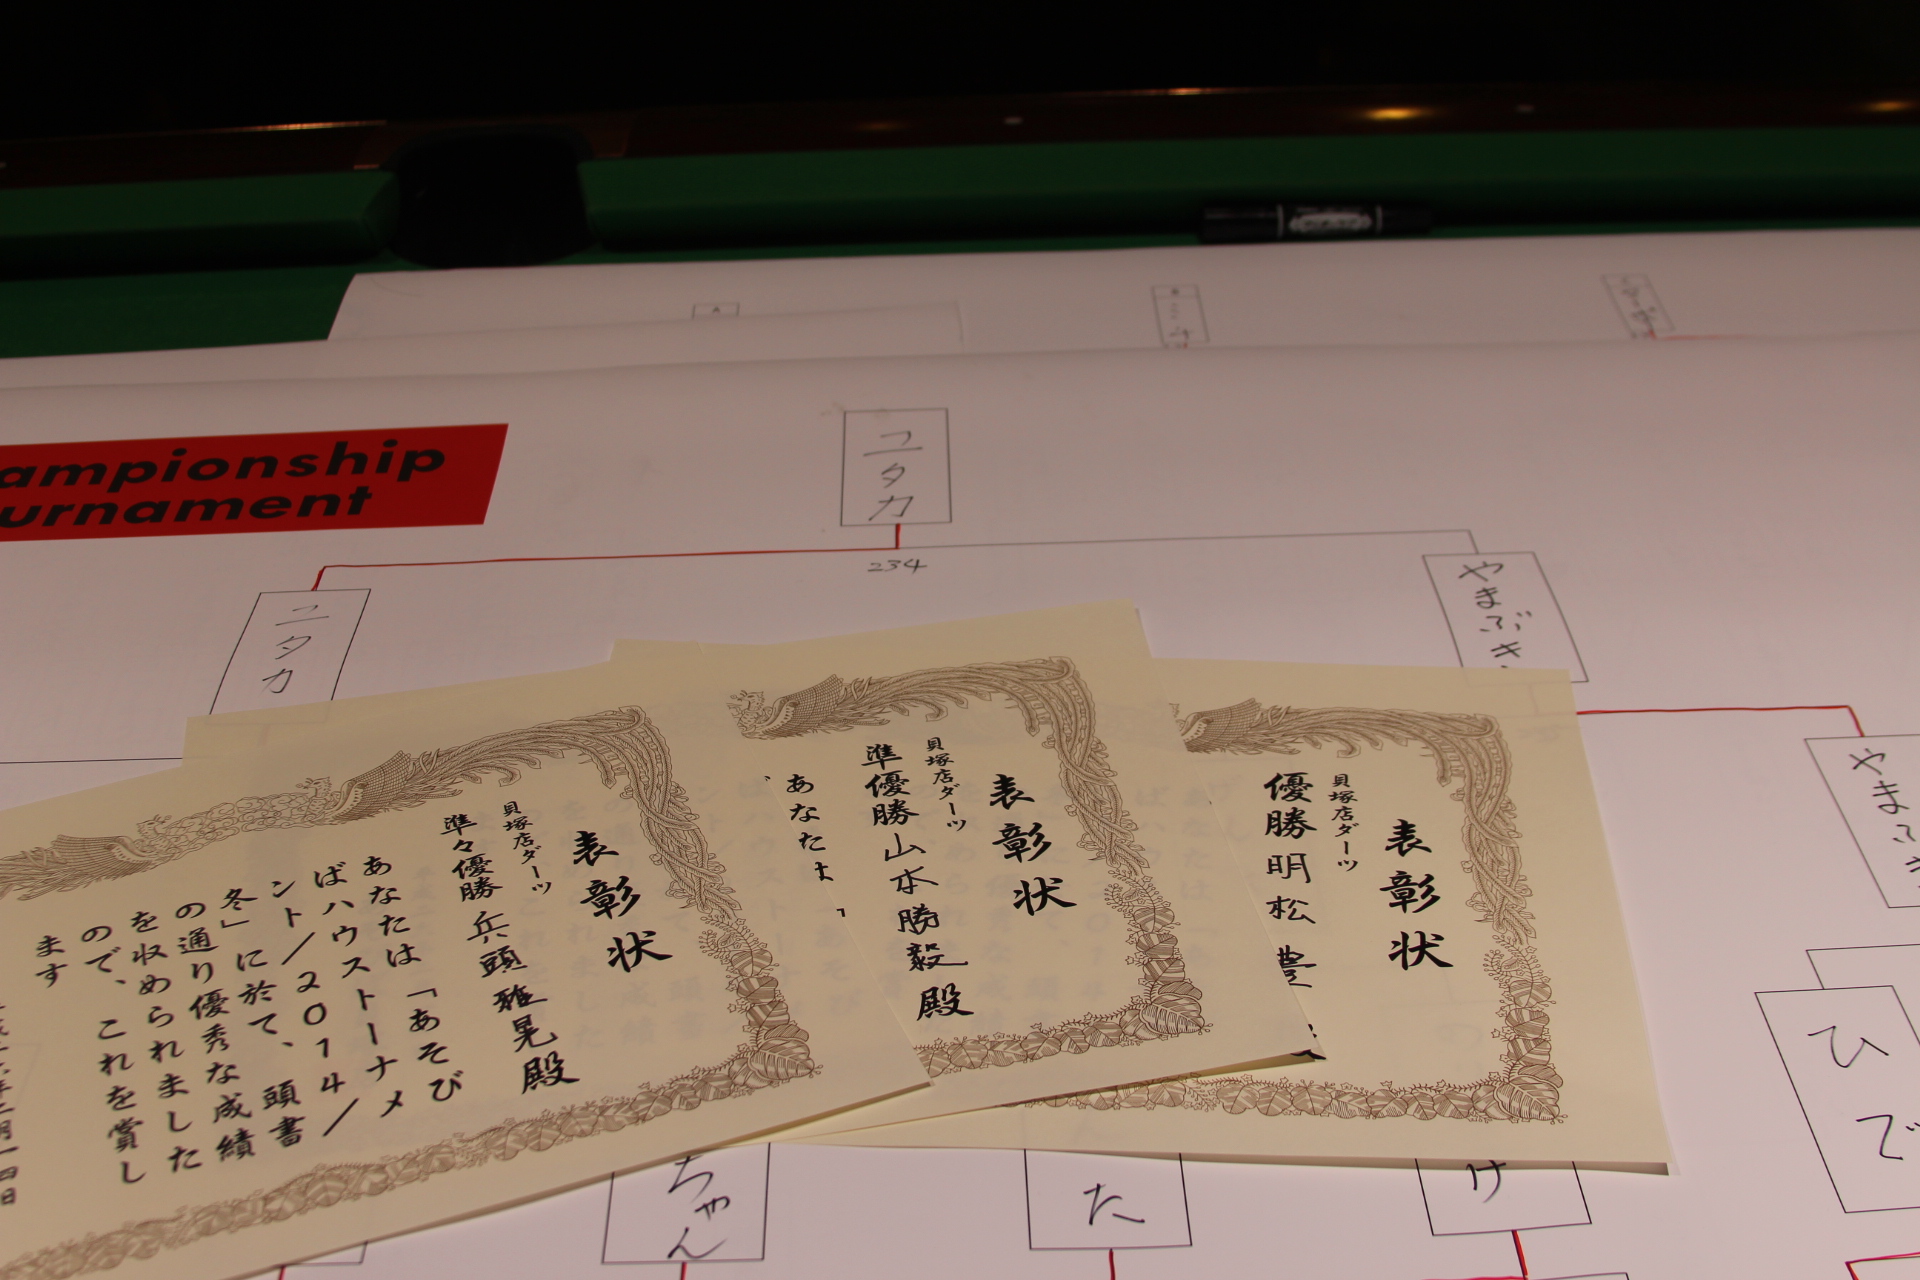 ampionship
urnament
ユタカ
234
ユタカ
やまぶき
やまぶき
ひで
表彰状
貝塚店ダーツ
優勝 明松 豊
表彰状
貝塚店ダーツ
準優勝 山本勝毅殿
あなたは
表彰状
貝塚店ダーツ
準々優勝 兵頭雅晃殿
あなたは「あそび
ばハウストーナメ
ント/2014/
冬」に於て、頭書
の通り優秀な成績
を収められました
ので、これを賞し
ます
ちゃん
た
け